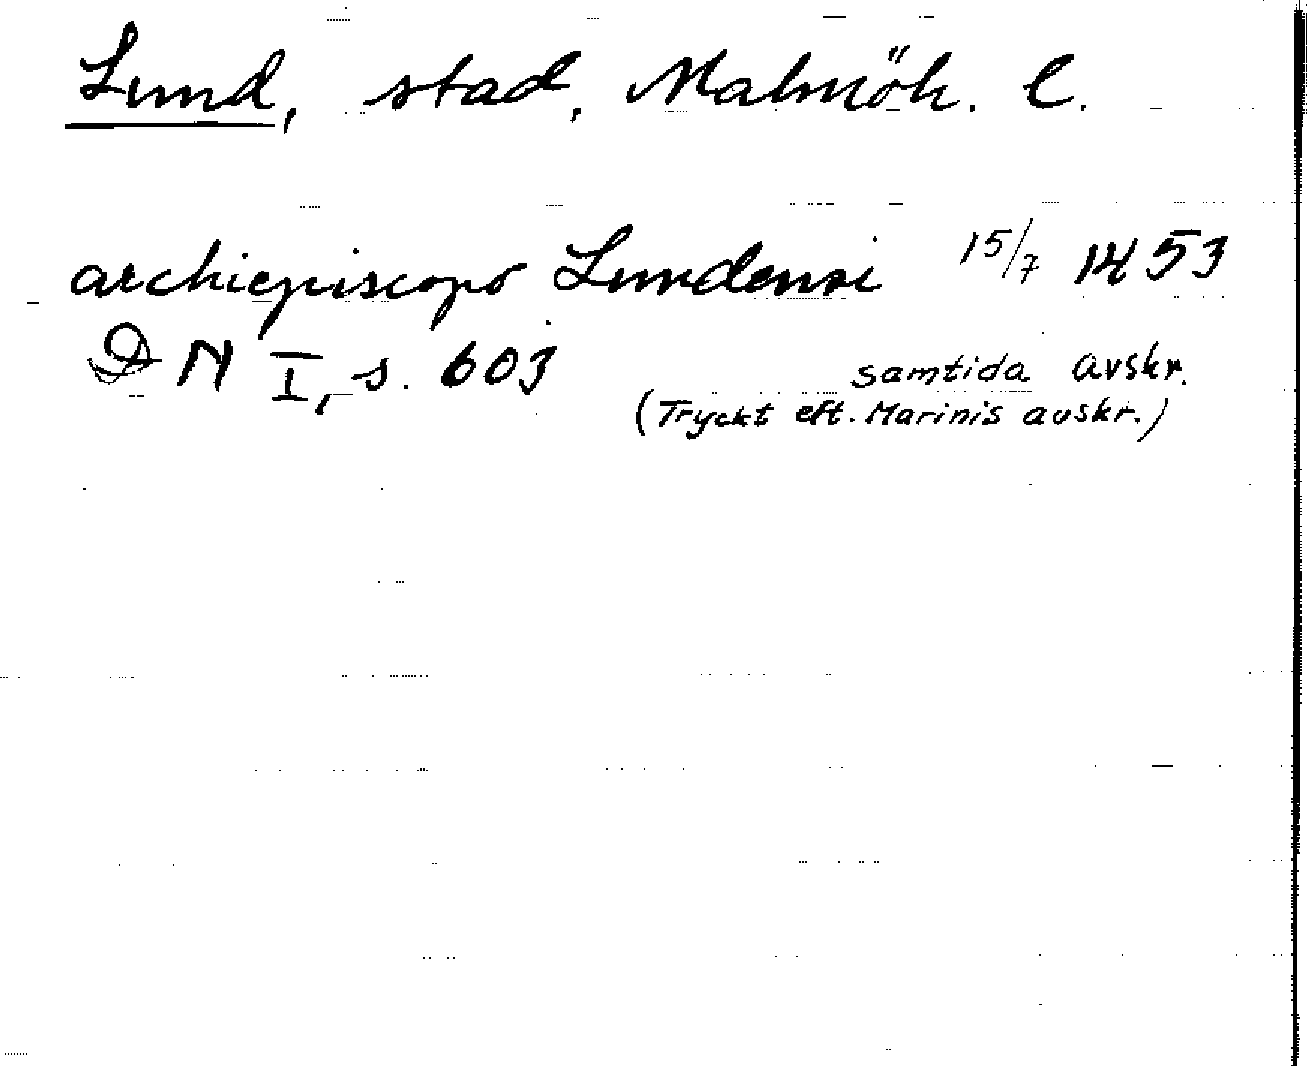 Lund, stad, Malmöh. l.
archiepiscopo Lundensi 15/7 1453
DN I, s. 603 samtida avskr.
(Tryckt eft. Marinis avskr.)